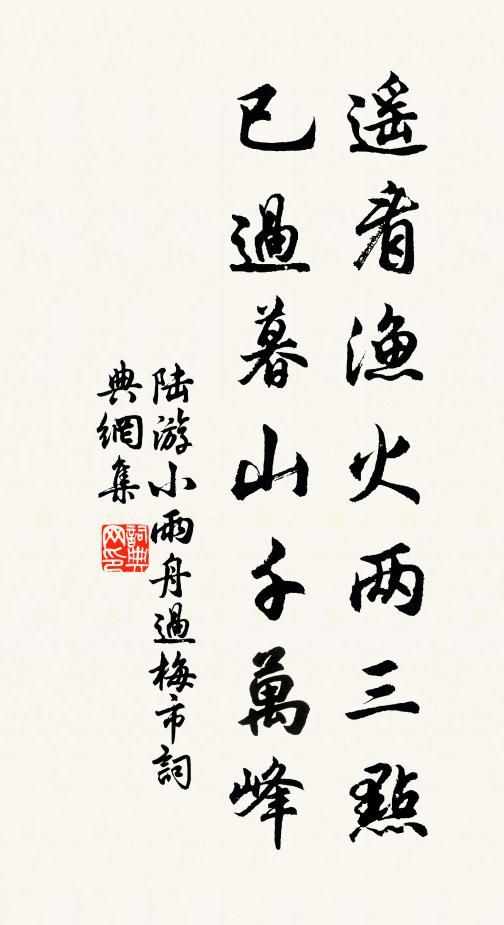 遥看漁火两三點
已過暮山千萬峰
陆游小雨舟過梅市詞
典網集
詞典
网印